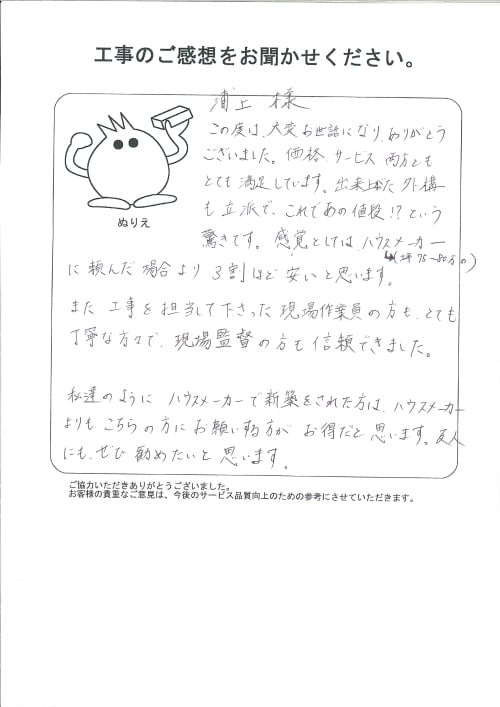 工事のご感想をお聞かせください。
浦上 様
この度は、大変お世話になり、ありがとう
ございました。価格 サービス 両方とも
とても満足しています。出来上った 外構
も立派で、これであの値段!? という
驚きです。感覚としては ハウスメーカー
(坪75〜80万の)
に頼んだ場合より 3割ほど安いと思います。
また 工事を担当して下さった現場作業員の方も、とても
丁寧な方々で、現場監督の方も信頼できました。
私達のように ハウスメーカーで新築をされた方は、ハウスメーカー
よりも こちらの方に お願いする方が お得だと思います。友人
にも、ぜひ勧めたいと思います。
ぬりえ
ご協力いただきありがとうございました。
お客様の貴重なご意見は、今後のサービス品質向上のための参考にさせていただきます。